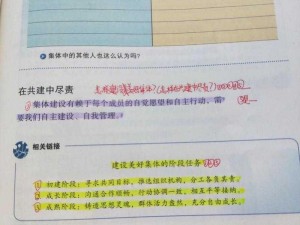 集体中的其他人也这么认为吗?
在共建中尽责
①集体建设有赖于每个成员的自觉愿望和自主行动,需
要我们自主建设、自我管理。
相关链接
建设美好集体的阶段任务
初建阶段:寻求共同目标,推选组织机构,分工各负其责。
成长阶段:沟通合作顺畅,行动协调一致,相互平等接纳。
成熟阶段:铸造思想灵魂,群体活力盎然,充分自由成长。